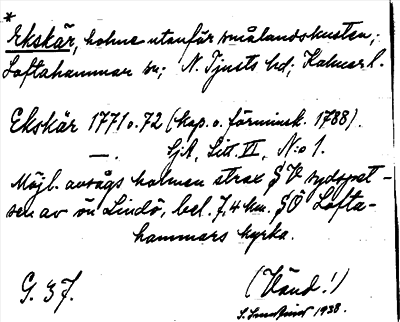 *
Ekskär, holme utanför smålandskusten;
Loftahammar sn; N. Tjusts hd; Kalmar l.
Ekskär 1771 o. 72 (kop. o. förminsk. 1788).
—. SjA, Litt. VI, N:o 1.
Möjl. avsågs holmen strax § V sydspet-
sen av ön Lindö, bel. 7,4 km. § Ö Lofta-
hammars kyrka.
G. 37.
(Vänd!)
1938.